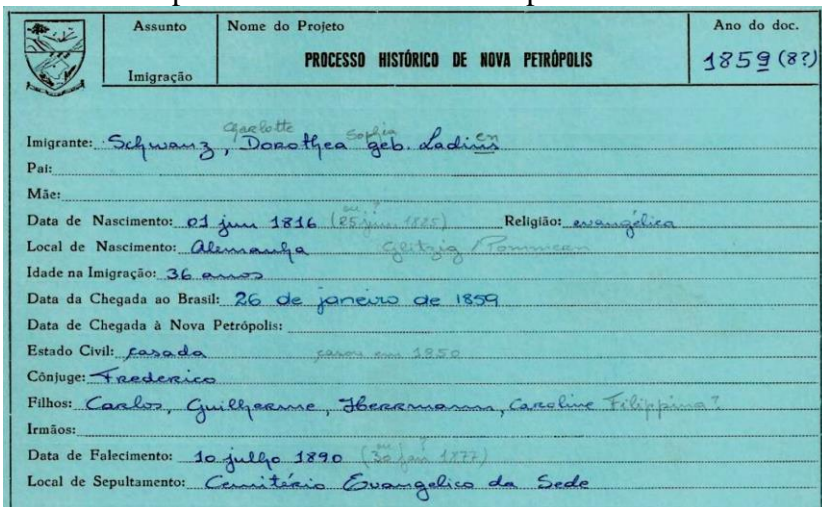 Assunto Nome do Projeto Ano do doc.
PROCESSO HISTÓRICO DE NOVA PETRÓPOLIS 1859 (8?)
Imigração
Charlotte Sophia en
Imigrante: Schwanz, Dorothea geb. Ladius
Pai:
Mãe:
ou ?
Data de Nascimento: 01 jun 1816 (25 jun 1825) Religião: evangélica
Local de Nascimento: Alemanha Glitzig / Pommern
Idade na Imigração: 36 anos
Data da Chegada ao Brasil: 26 de janeiro de 1859
Data de Chegada à Nova Petrópolis:
Estado Civil: casada casou em 1850
Cônjuge: Frederico
Filhos: Carlos, Guilherme, Herrmann, Caroline Filippina?
Irmãos:
ou ?
Data de Falecimento: 10 julho 1890 (30 jan 1877)
Local de Sepultamento: Cemitério Evangelico da Sede